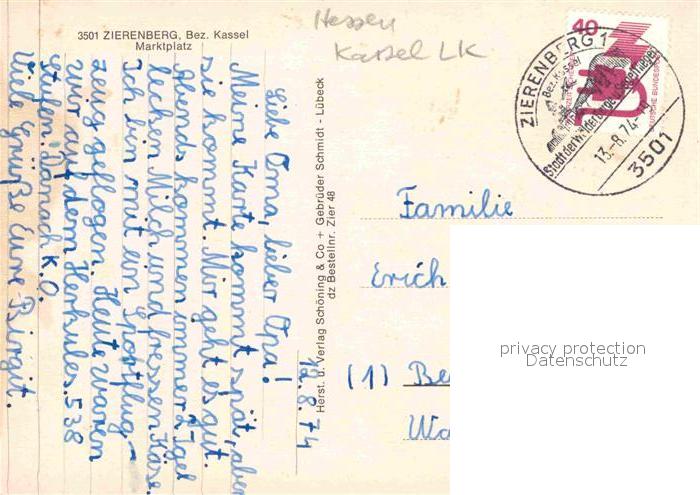 3501 ZIERENBERG, Bez. Kassel
Marktplatz
Hessen
Kassel LK
40
DEUTSCHE BUNDESPOST
ZIERENBERG 1
Bez. Kassel
Stadt der Wälder, Berge u. Segelflieger
13.-8.74-
3501
12.8.74
Liebe Oma, lieber Opa!
Meine Karte kommt spät, aber
sie kommt. Mir geht es gut.
Abends kommen immer 2 Igel
lecken Milch und fressen Käse.
Ich bin mit ein Sportflug-
zeug geflogen. Heute waren
wir auf dem Herkules. 538
Stufen. Danach K.O.
Viele Grüße Eure Birgit.
Herst. u. Verlag Schöning & Co + Gebrüder Schmidt - Lübeck
dz Bestellnr. Zier 48
Familie
Erich
(1) Be
Wa
privacy protection
Datenschutz